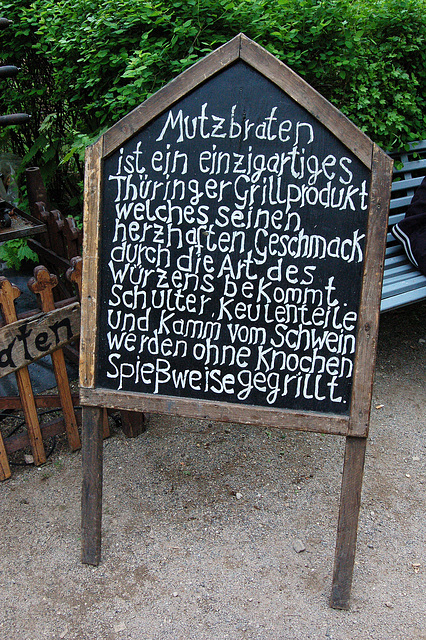 Mutzbraten
ist ein einzigartiges
Thüringer Grillprodukt
welches seinen
herzhaften Geschmack
durch die Art des
Würzens bekommt.
Schulter, Keulenteile
und Kamm vom Schwein
werden ohne Knochen
Spießweise gegrillt.
aten